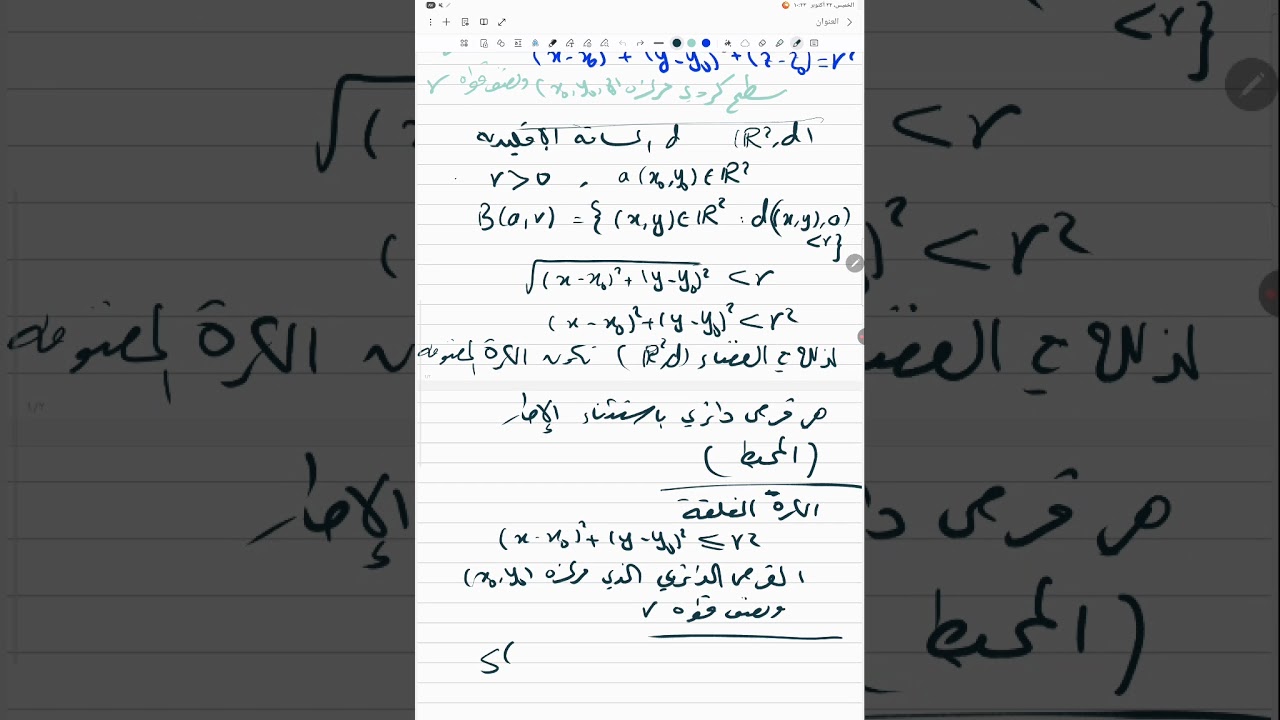 الخميس، ٢٢ أكتوبر ١٠:٢٣
العنوان
(x-x₀)² + (y-y₀)² + (z-z₀)² = r²
سطح كرة مركزه (x₀, y₀, z₀) ونصف قطره r
(ℝ², d) d المسافة الإقليدية
a(x₀, y₀) ∈ ℝ² , r > 0
B(a, r) = { (x, y) ∈ ℝ² : d((x, y), a)
< r }
√((x-x₀)² + (y-y₀)²) < r
(x-x₀)² + (y-y₀)² < r²
لذلك في الفضاء (ℝ², d) تكون الكرة المفتوحة
هي قرص دائري باستثناء الإطار
(المحيط)
الكرة المغلقة
(x-x₀)² + (y-y₀)² ≤ r²
القرص الدائري الذي مركزه (x₀, y₀)
ونصف قطره r
S(